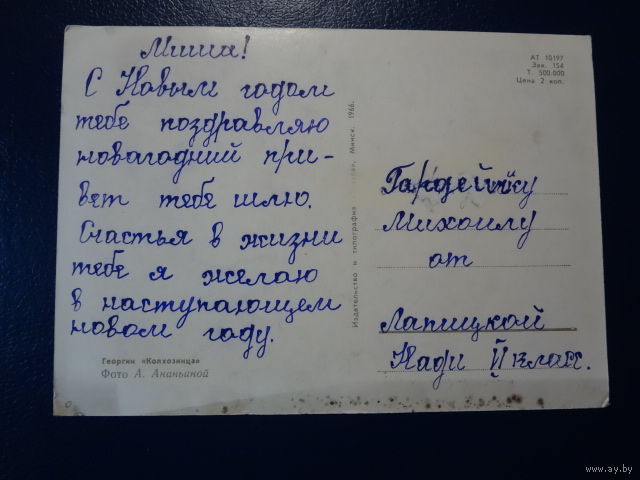 Миша!
С Новым годом
тебе поздравляю
новагодний при-
вет тебе шлю.
Счастья в жизни
тебе я желаю
в наступающем
новом году.
Георгин «Колхозница»
Фото А. Ананьиной
Издательство и типография Минск. 1966.
АТ 10197
Зак. 154
Т. 500.000
Цена 2 коп.
Гардейчику
Михаилу
от
Лапицкой
Нади II класс.
www.ay.by